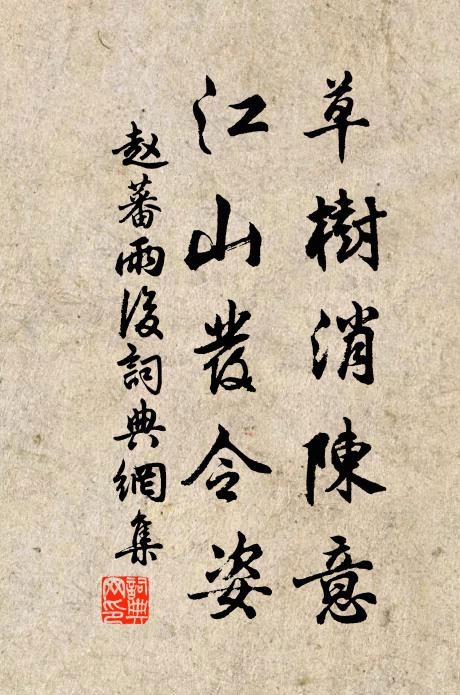 草樹消陳意
江山發令姿
赵蕃雨後詞典網集
詞典網印